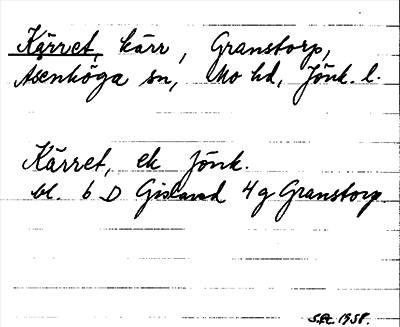 Kärret, kärr, Granstorp,
Åsenhöga sn, Mo hd, Jönk. l.
Kärret, ek Jönk.
bl. 6 D Gislaved 4 g Granstorp
1958.